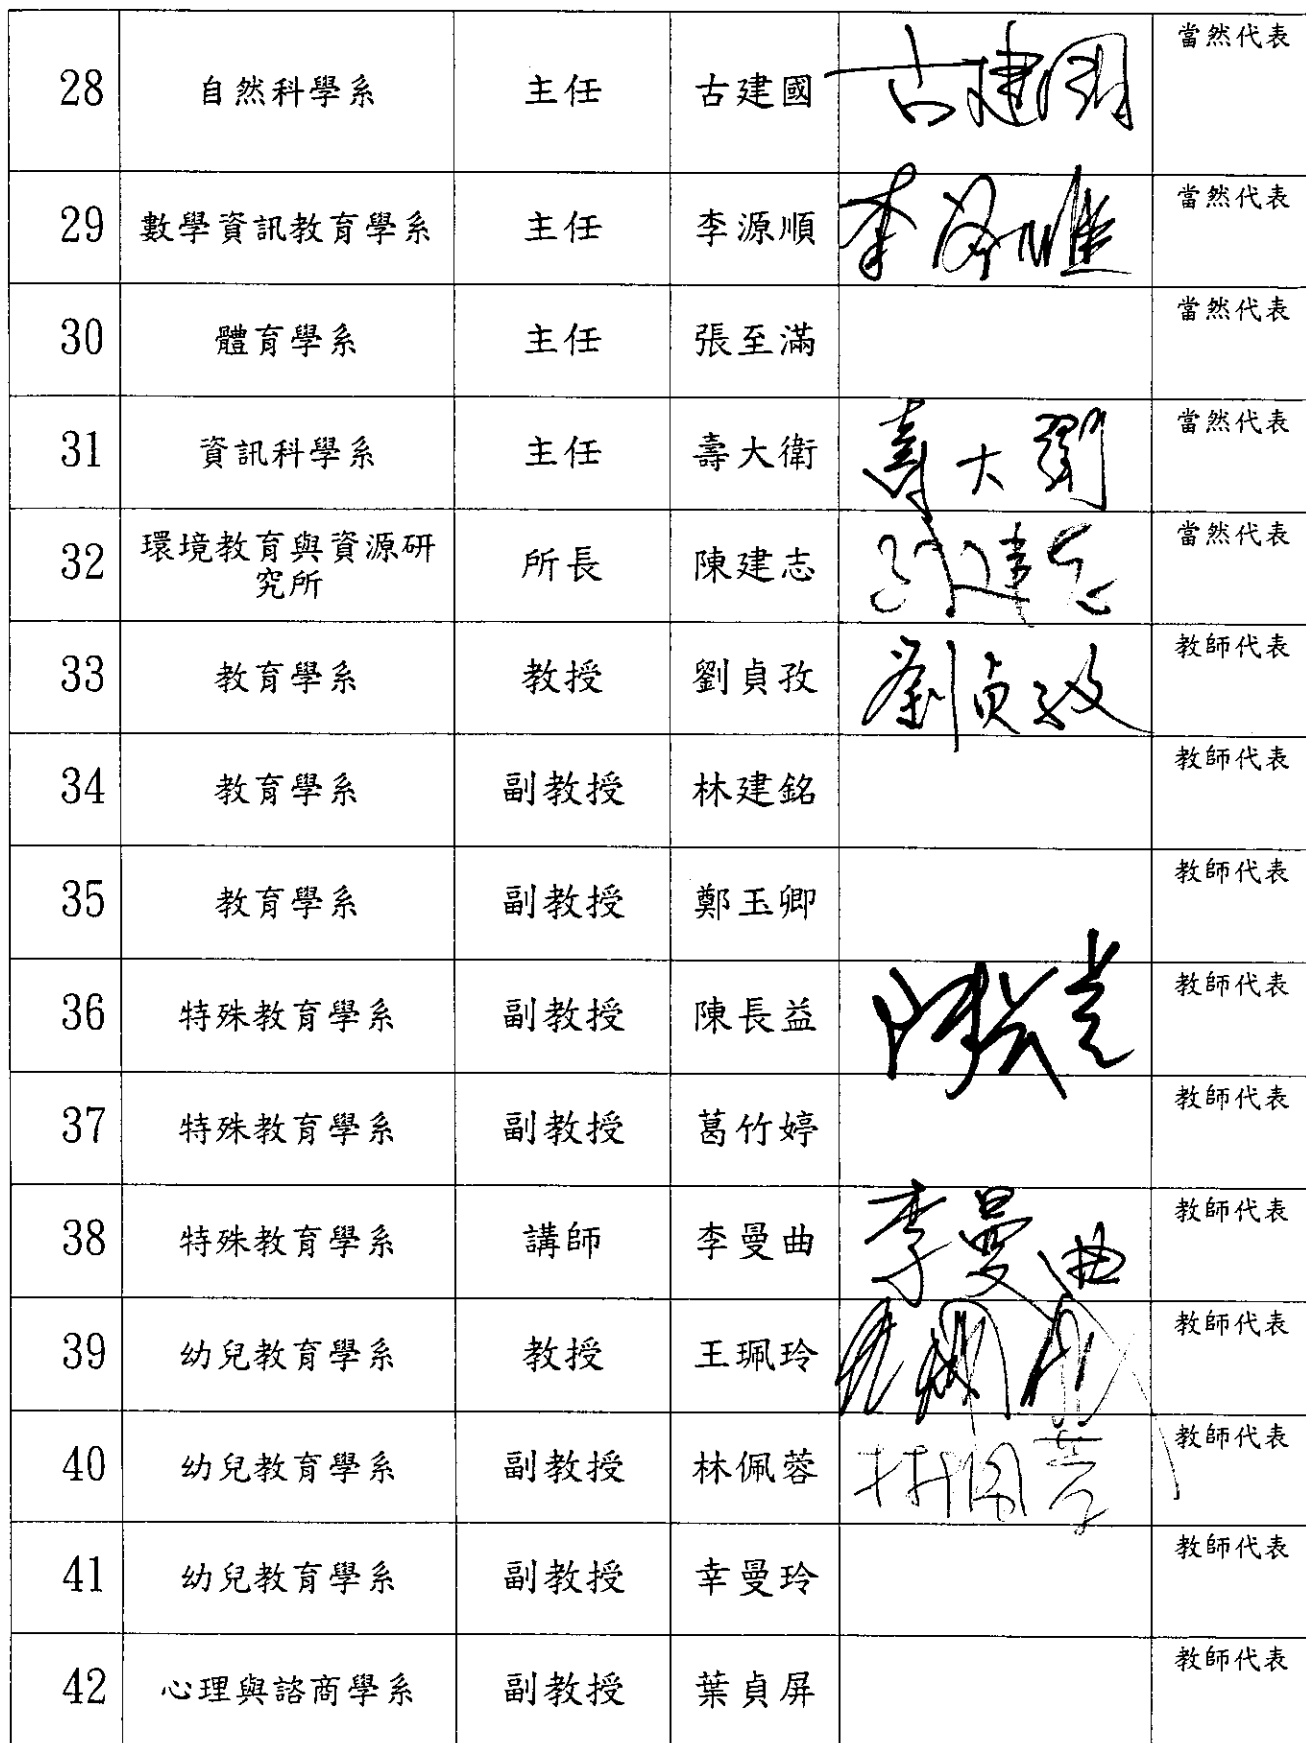 28 自然科學系 主任 古建國 古建國 當然代表
29 數學資訊教育學系 主任 李源順 當然代表
30 體育學系 主任 張至滿 當然代表
31 資訊科學系 主任 壽大衛 壽大衛 當然代表
32 環境教育與資源研 所長 陳建志 陳建志 當然代表
究所
33 教育學系 教授 劉貞孜 劉貞孜 教師代表
34 教育學系 副教授 林建銘 教師代表
35 教育學系 副教授 鄭玉卿 教師代表
36 特殊教育學系 副教授 陳長益 陳長益 教師代表
37 特殊教育學系 副教授 葛竹婷 教師代表
38 特殊教育學系 講師 李曼曲 李曼曲 教師代表
39 幼兒教育學系 教授 王珮玲 教師代表
40 幼兒教育學系 副教授 林佩蓉 林佩蓉 教師代表
41 幼兒教育學系 副教授 幸曼玲 教師代表
42 心理與諮商學系 副教授 葉貞屏 教師代表